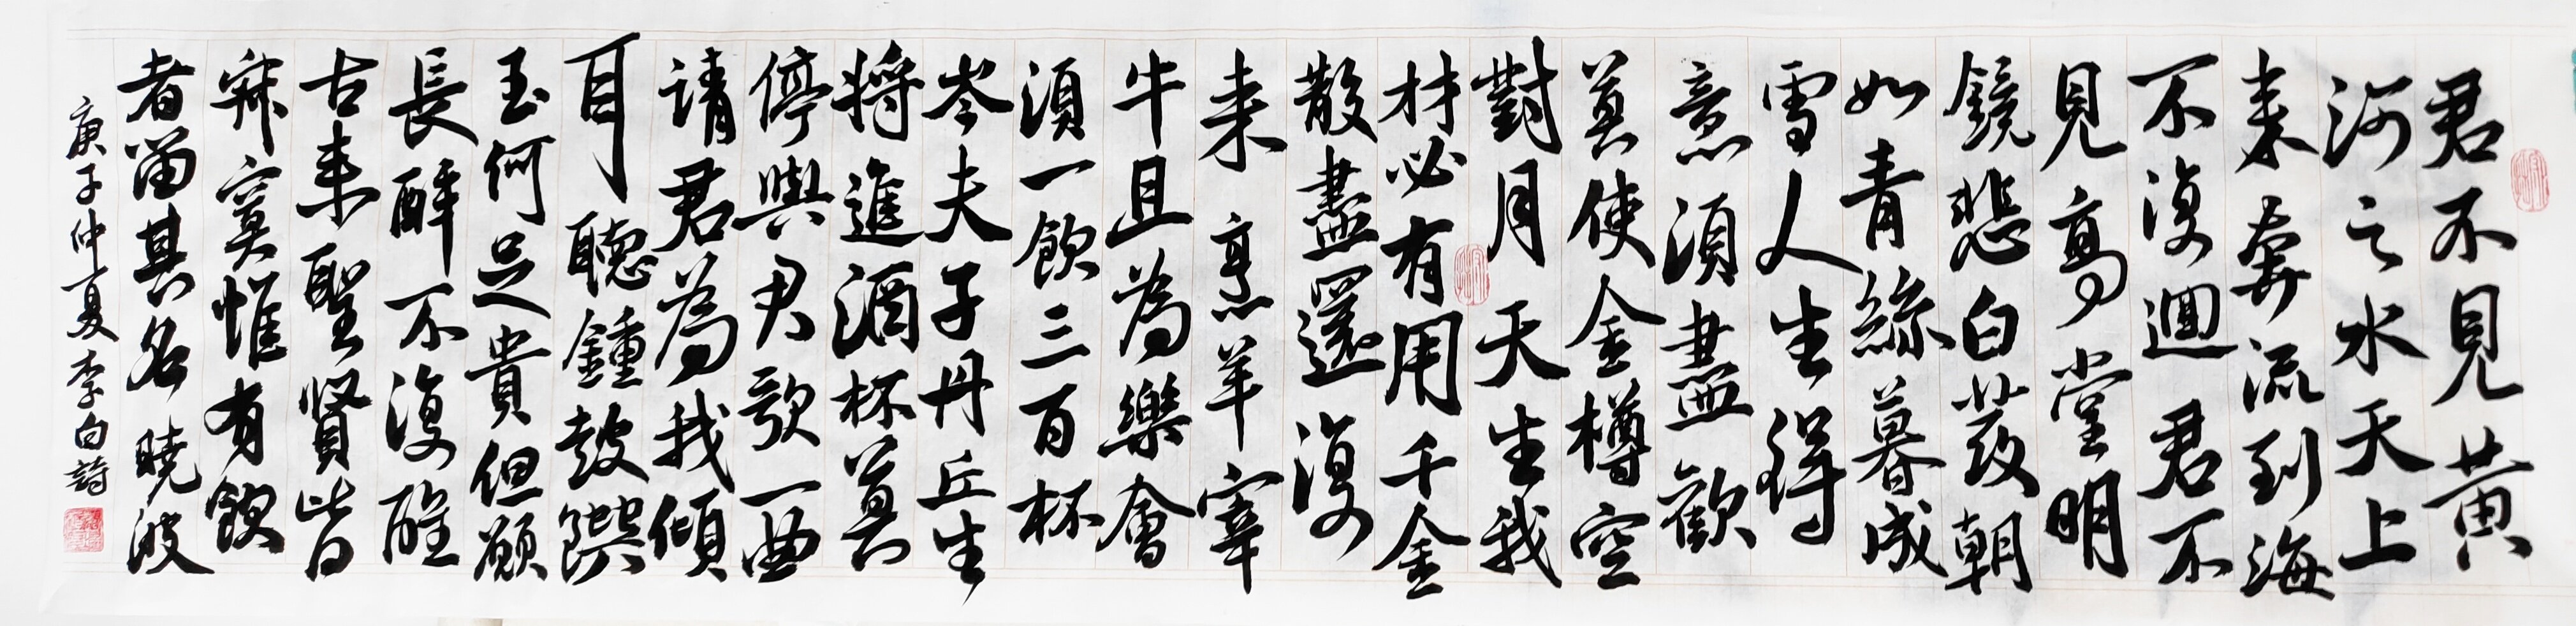 君不見黄
河之水天上
来奔流到海
不復迴君不
見高堂明
鏡悲白髮朝
如青絲暮成
雪人生得
意須盡歡
莫使金樽空
對月天生我
材必有用千金
散盡還復
来烹羊宰
牛且為樂會
須一飲三百杯
岑夫子丹丘生
將進酒杯莫
停與君歌一曲
请君為我傾
耳聽鍾鼓饌
玉何足貴但願
長醉不復醒
古来聖賢皆
寂寞惟有飲
者留其名曉波
庚子仲夏李白詩